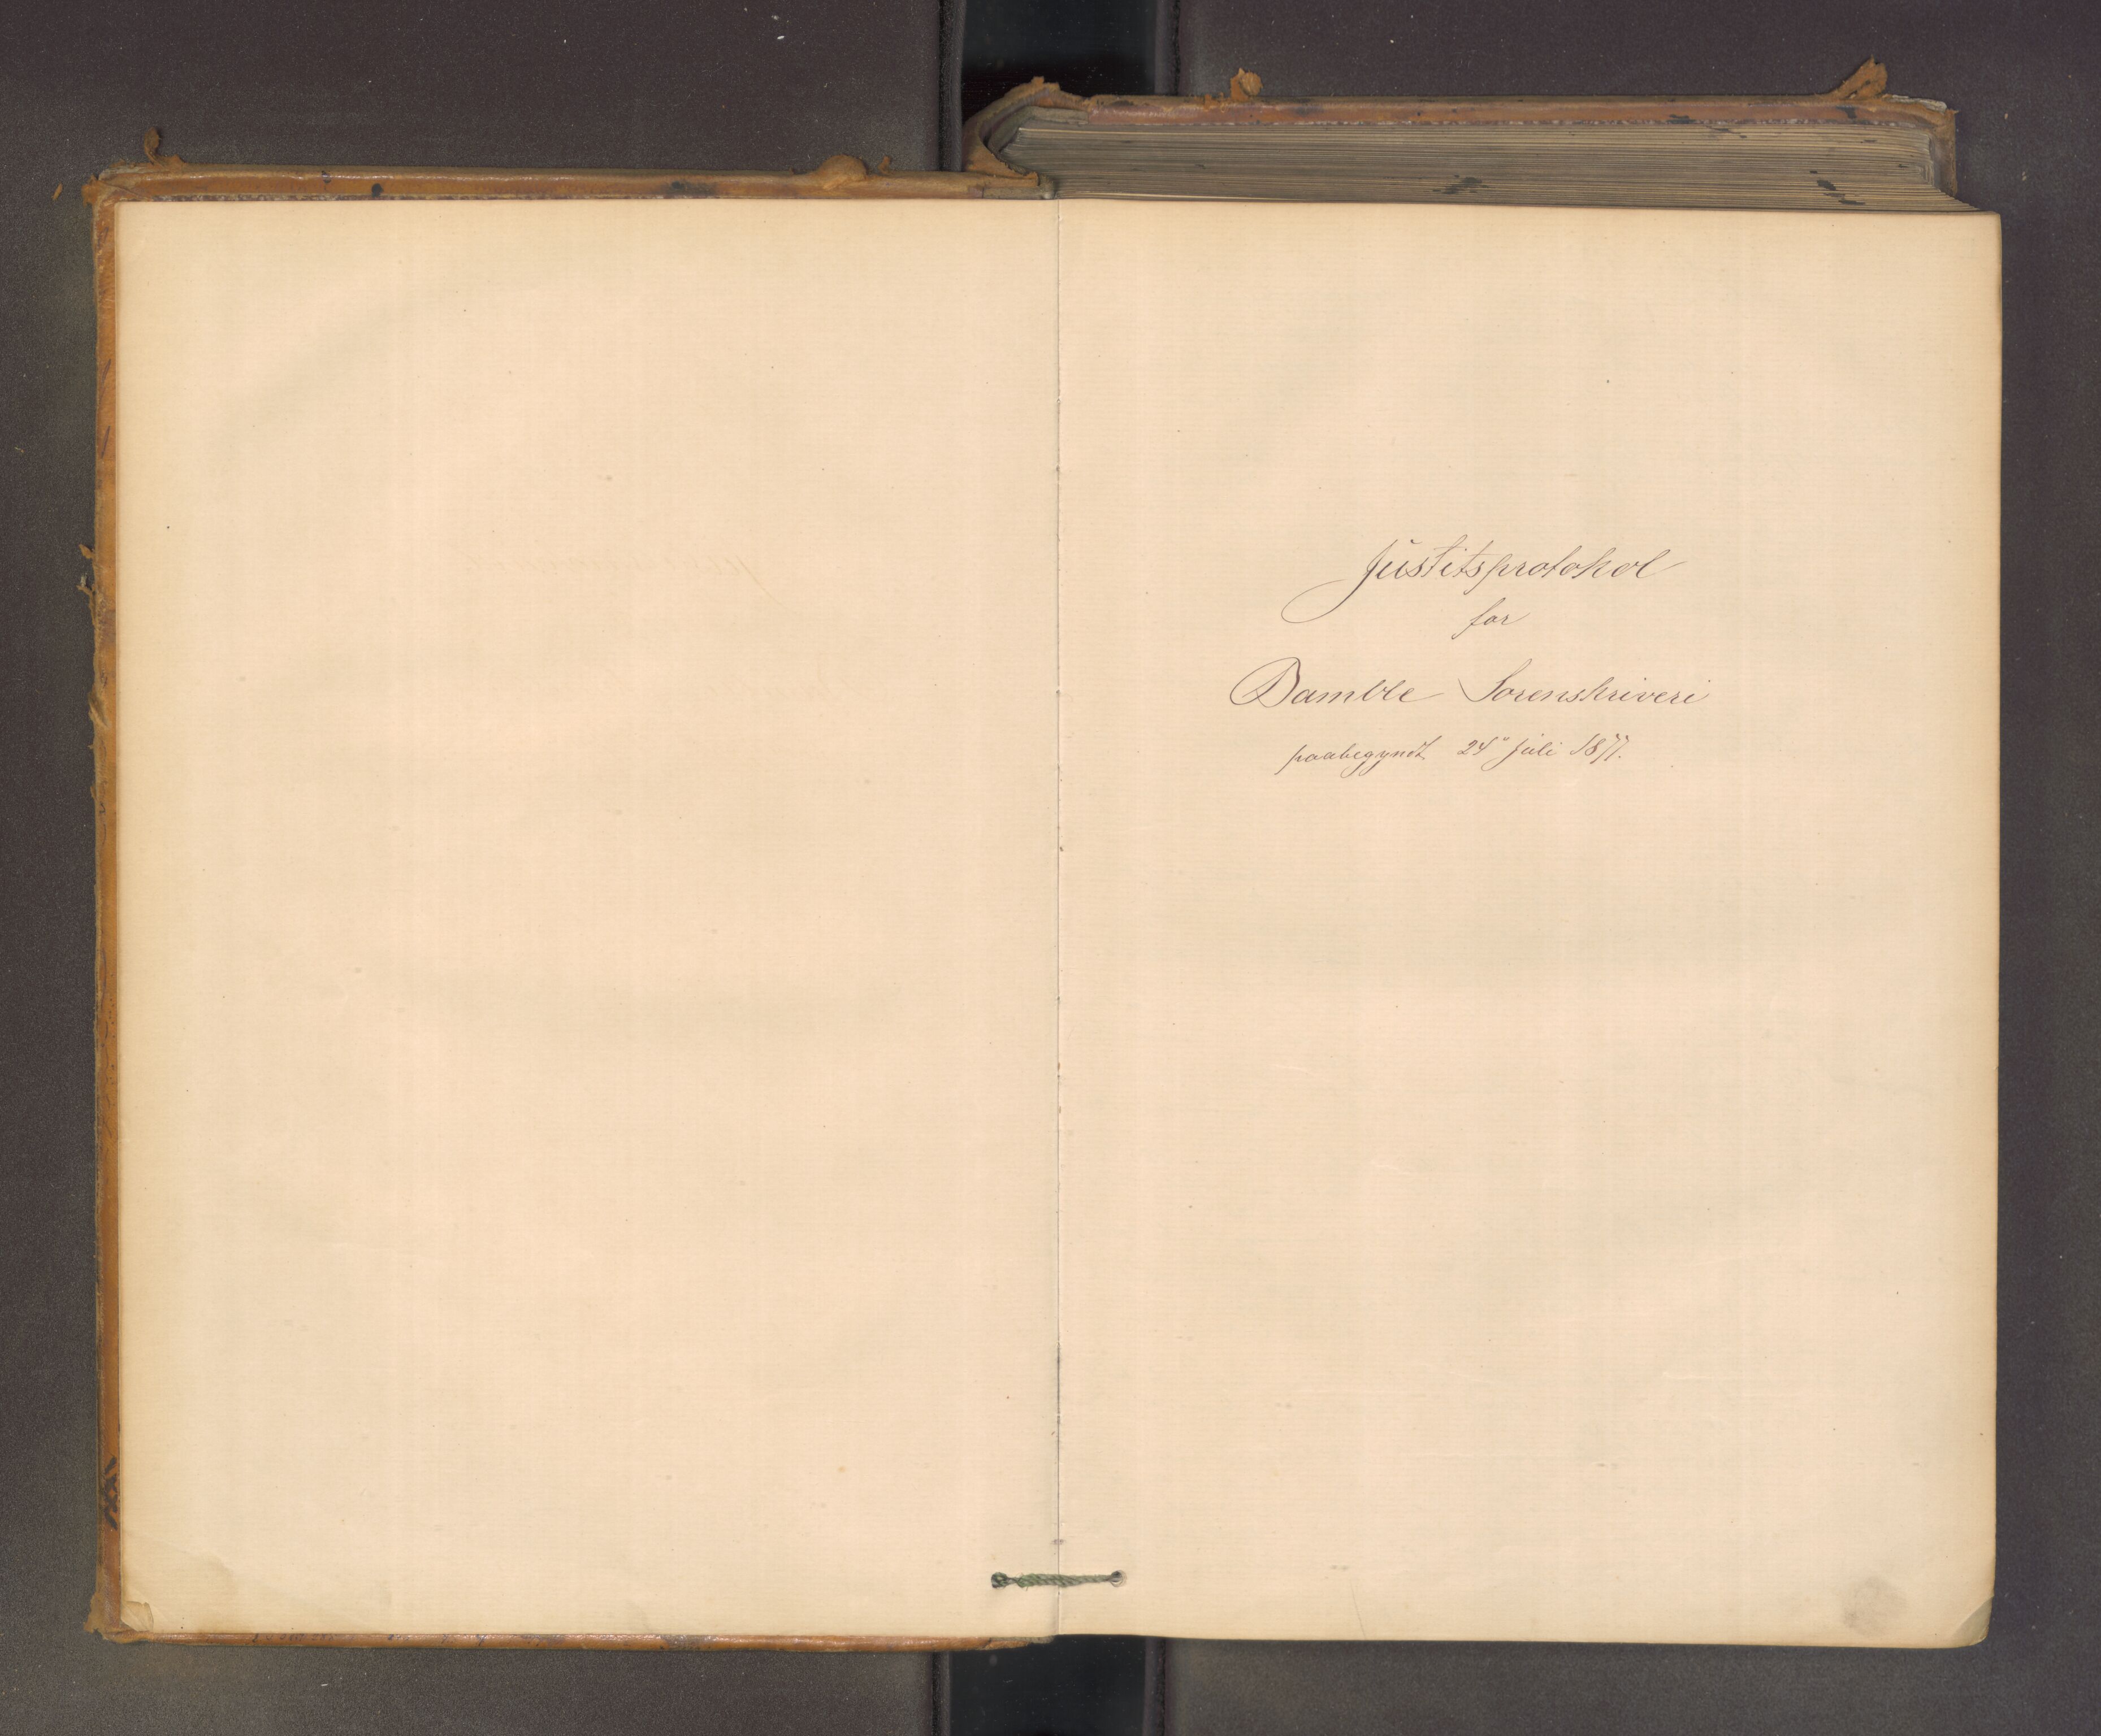 Justitsprotokol
for
Bamble Sorenskriveri
paabegyndt 24" Juli 1877.